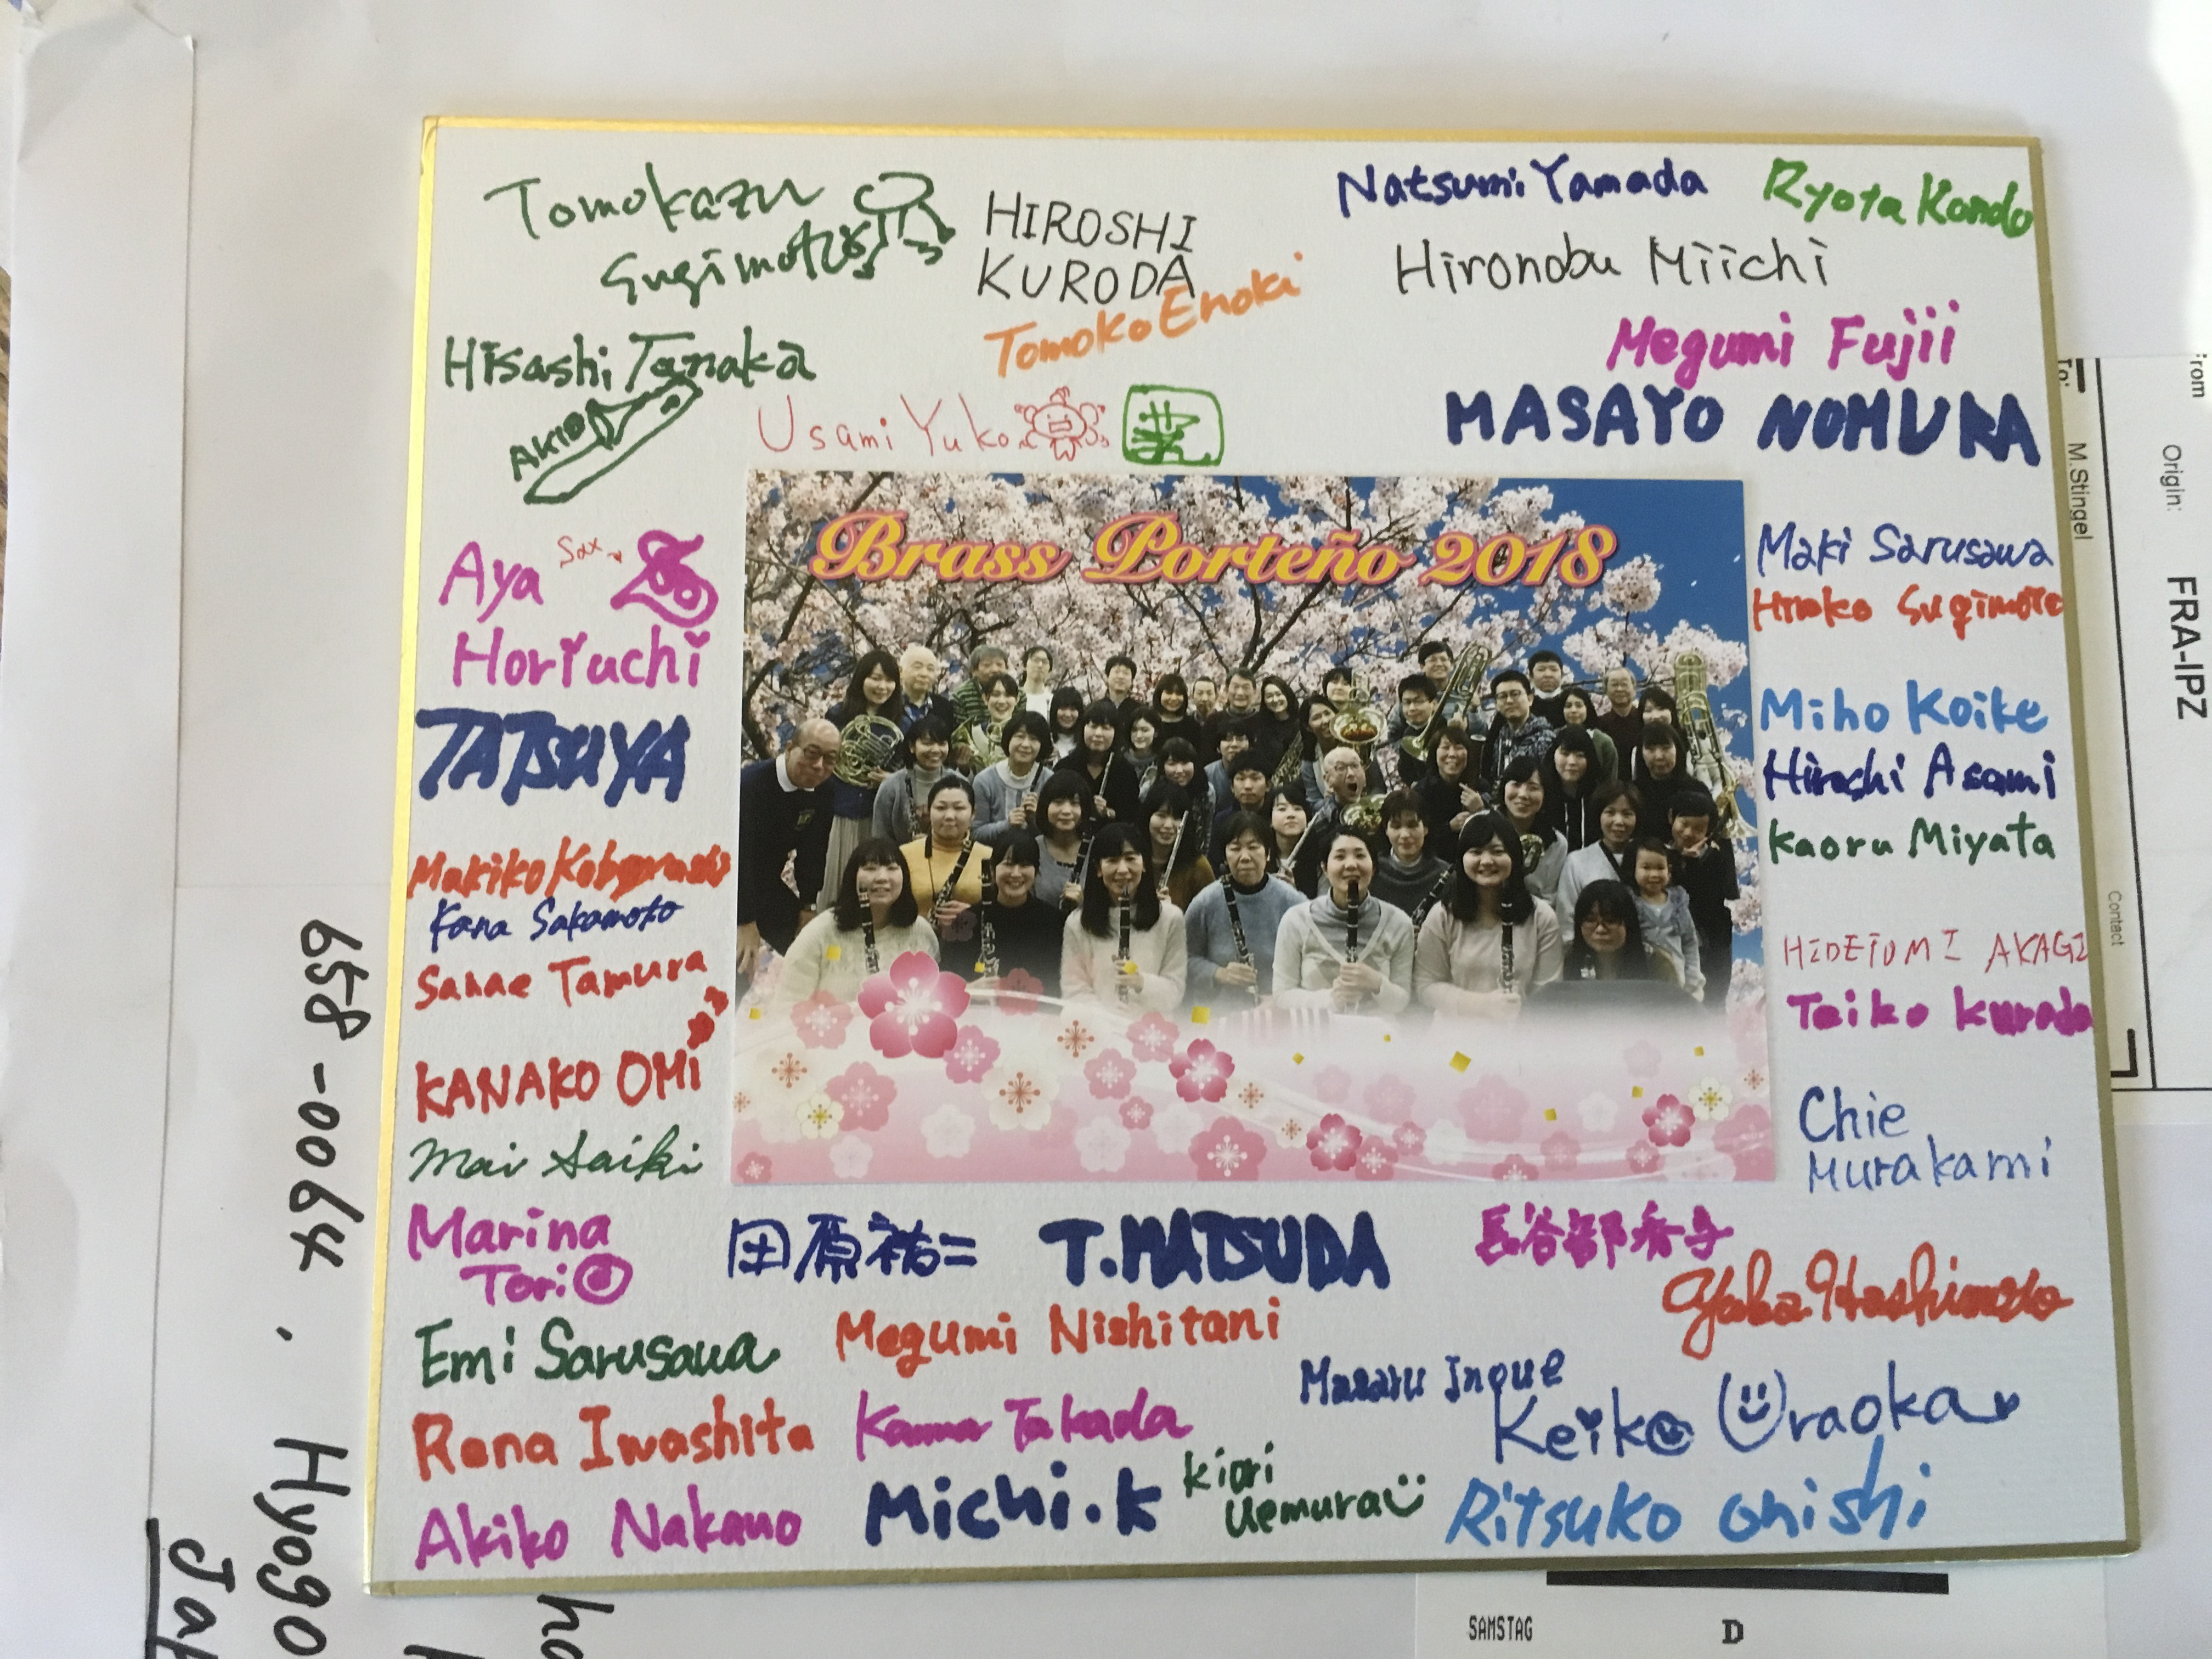 Tomokazu
Sugimoto
HIROSHI
KURODA
Tomoko Enoki
Natsumi Yamada
Ryota Kondo
Hironobu Miichi
Megumi Fujii
MASAYO NOMURA
Hisashi Tanaka
AKIO
Usami Yuko
Aya
Sax
Horiuchi
TATSUYA
Makiko Kobayashi
Kana Sakamoto
Sanae Tamura
KANAKO OMI
Mai Saiki
Marina
Tori
Brass Porteño 2018
Maki Sarusawa
Hiroko Sugimoto
Miho Koike
Hiroshi Asami
Kaoru Miyata
HIDETOMI AKAGI
Teiko Kuroda
Chie
Murakami
田原祐二
T.MATSUDA
長谷部香子
Hashimoto
Emi Sarusawa
Megumi Nishitani
Masaru Inoue
Keiko Uraoka
Rena Iwashita
Takada
Akiko Nakano
Michi.K
Kiori
Uemura
Ritsuko Onishi
658-0064.
Hyogo
From
To:
M.Stingel
Origin:
FRA-IPZ
Contact
SAMSTAG
D